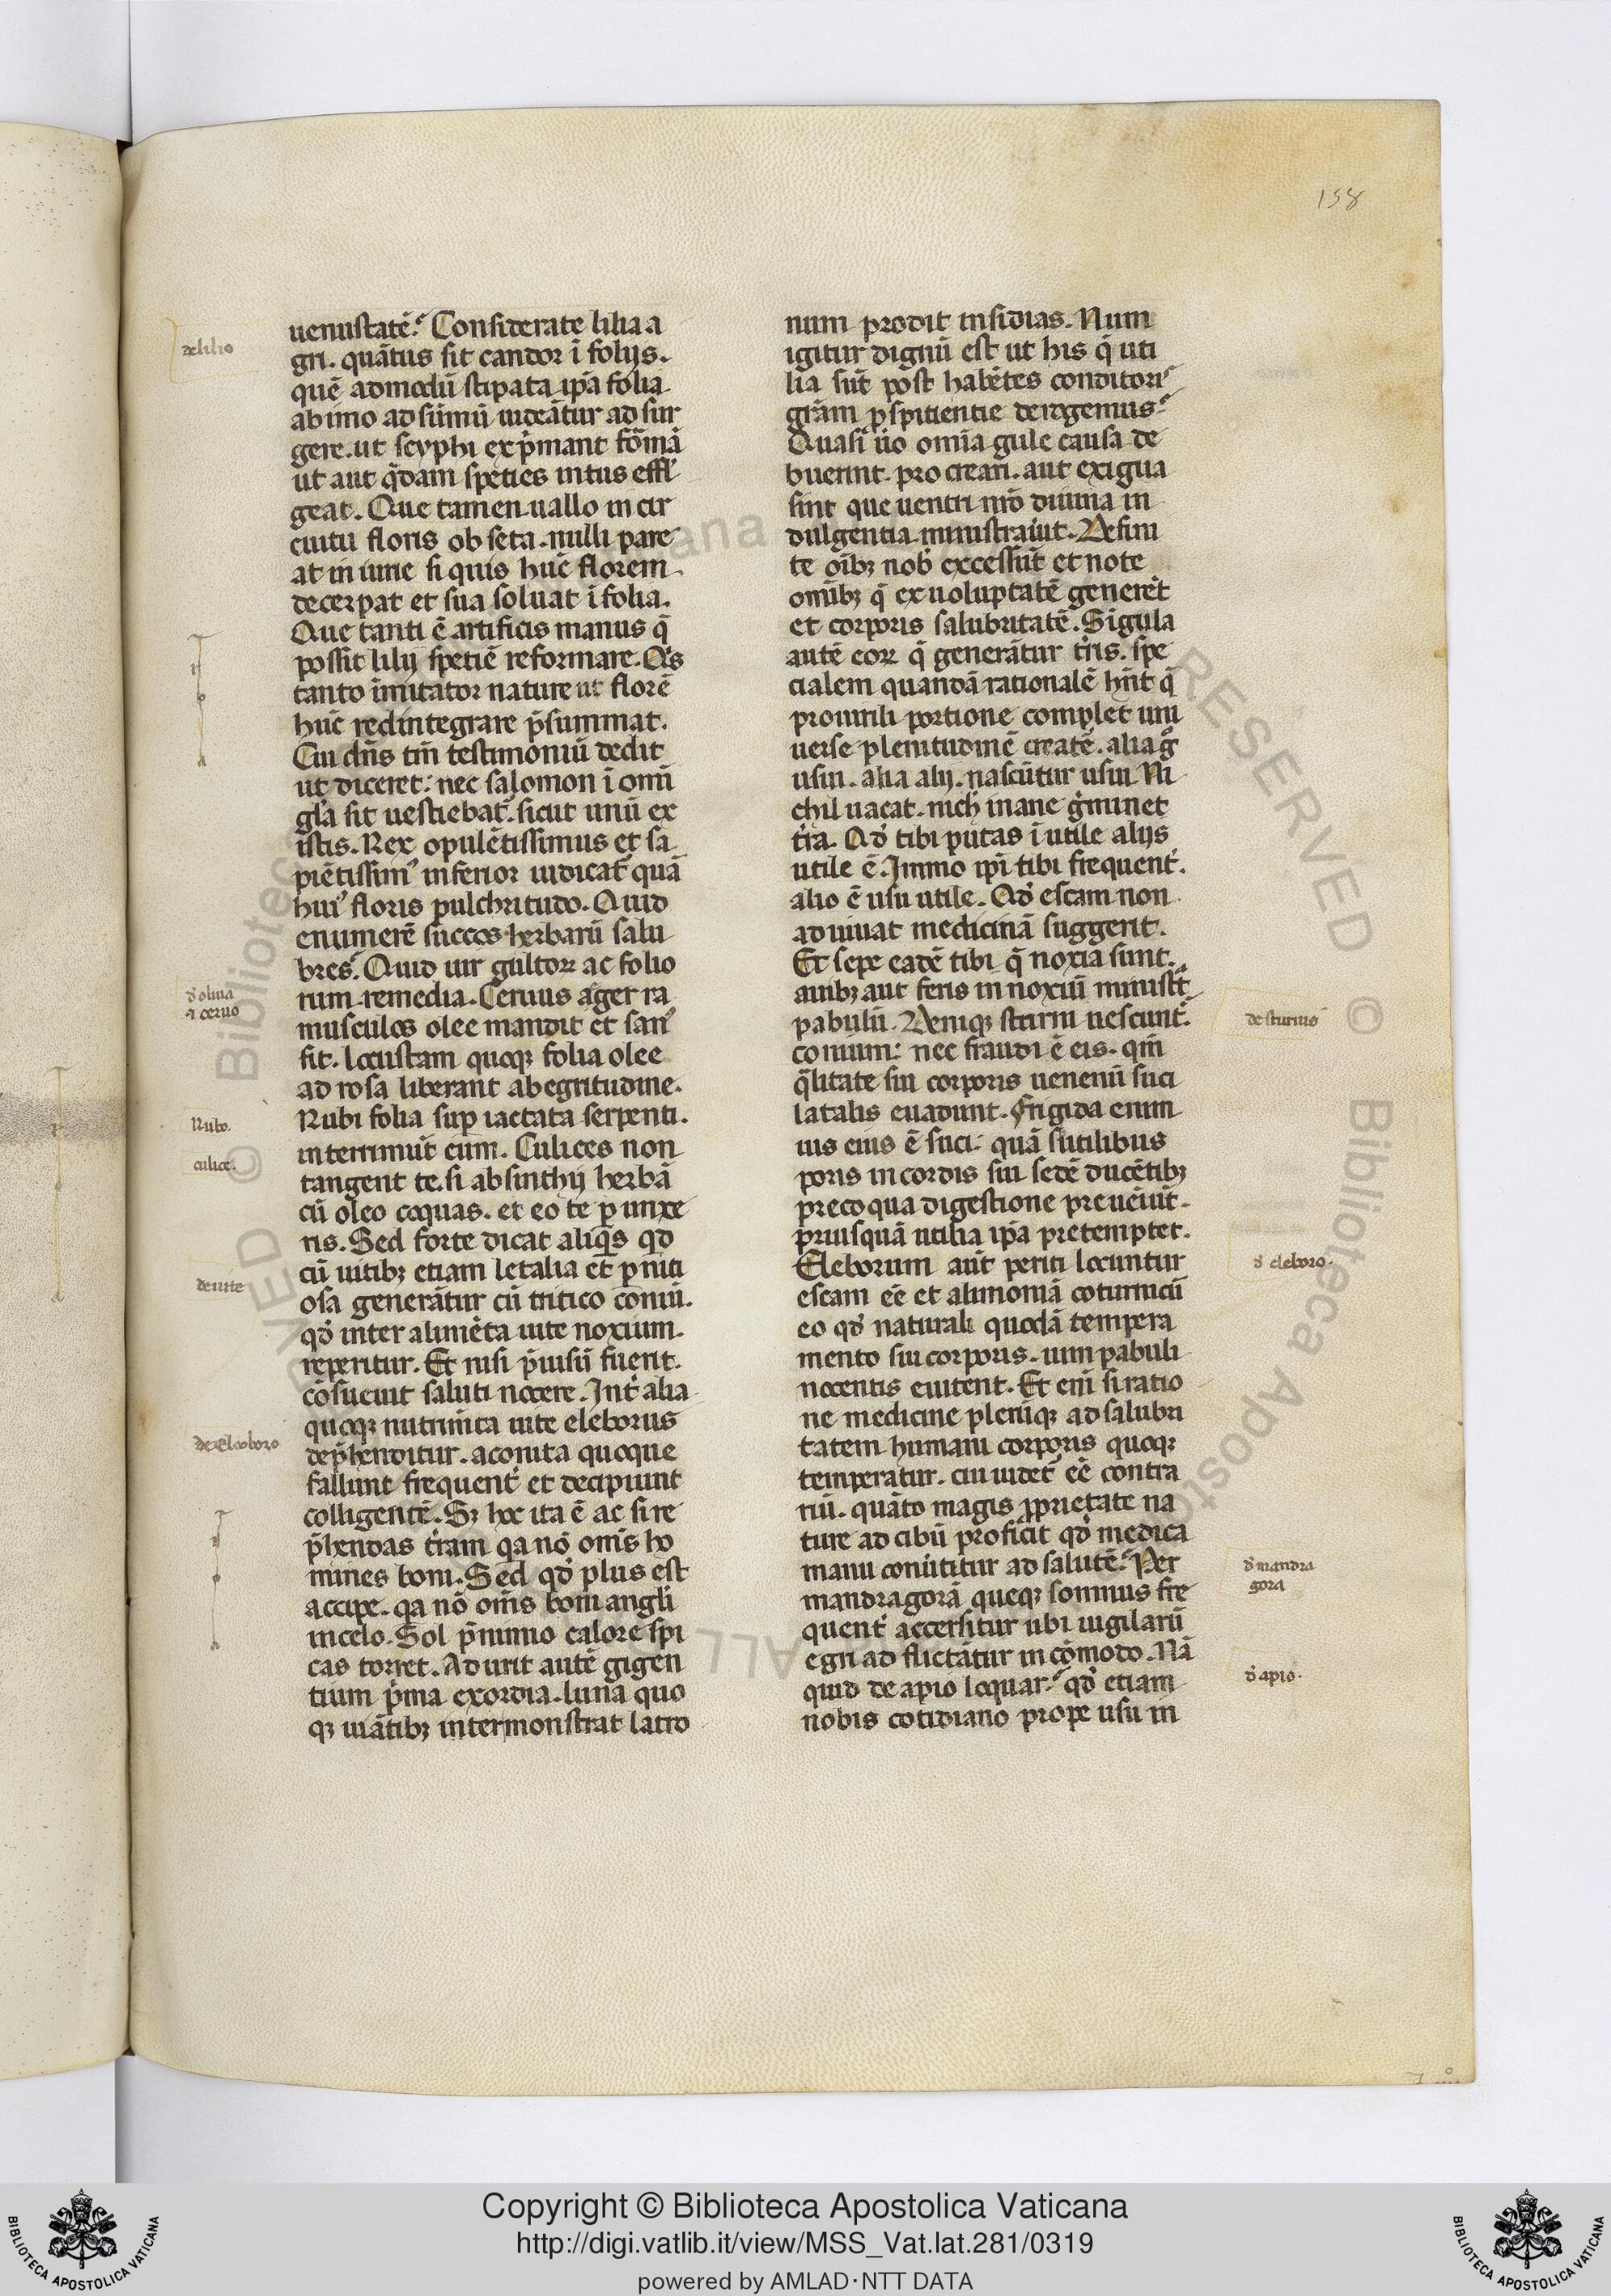 158
uenustatē. Considerate lilia a
gri. quātus sit candor ī folijs.
quē admodū stipata ip̄a folia
ab imo ad sūmū uideātur ad sur
gere. ut scyphi exp̄mant fōmā
ut aut q̄dam speties intus efful
geat. Que tamen uallo in cir
cuitu floris obseta. nulli pare
at iniurie si quis hūc florem
decerpat et sua soluat ī folia.
Que tanti ē artificis manus q̄
possit lilij spetiē reformare. Q̄s
tanto īmitator nature ut florē
hūc redintegrare p̄summat.
Cui dn̄s tm̄ testimoniū dedit
ut diceret: nec salomon ī omī
gl̄a sit uestiebat̄. sicut unū ex
istis. Rex opulētissimus et sa
piētissimꝰ inferior iudicat̄ quā
huiꝰ floris pulchritudo. Quid
enumerē succos herbarū salu
bres. Quid uir gultoꝝ ac folio
rum remedia. Ceruus ager ra
musculos olee mandit et sanꝰ
fit. locustam quoqꝫ folia olee
ad rosa liberant ab egritudine.
Rubi folia sup iactata serpenti.
interimūt eum. Culices non
tangent te. si absinthij herbā
cū oleo coquas. et eo te p unxe
ris. Sed forte dicat aliq̄s qd
cū uitibꝫ etiam letalia et p̄niti
osa generātur cū tritico coniū.
qd̄ inter alimēta uite noxium
reperitur. Et nisi p̄uisū fuerit.
cōsueuit saluti nocere. Int̄ alia
quoqꝫ nutrimēta uite eleborus
dep̄henditur. aconita quoque
fallunt frequent̄ et decipiunt
colligentē. Sꝫ hoc ita ē ac si re
p̄hendas t̄ram qa nō om̄s ho
mines boni. Sed qd̄ plus est
accipe. qa nō om̄s boni angl̄i
in celo. Sol p̄nimio calore spi
cas torret. Ad urit autē gigen
tium p̄ma exordia. luna quo
qꝫ uiātibꝫ inter monstrat latro
de lilio
d̄ oliua
⁊ ceruo
Rubo.
culice.
de uite
de Eleoboro
num prodit insidias. Num
igitur dignū est ut his q̄ uti
lia sūt post habētes conditori
grām p̄spitientie derogemus
Quasi ūo omīa gule causa de
buerint procreari. aut exigua
sint que uentri nrō diuina in
dulgentia ministrauit. Defini
te oībꝫ nob̄ excessūt et note
omībꝫ q̄ ex uoluptatē generēt
et corporis salubritatē. Sīgula
autē eoꝝ q̄ generātur t̄ris. spe
cialem quandā rationalē hn̄t q̄
pro uirili portione complēt uni
uerse plenitudinē creatē. alia ḡ
usui. alia alij. nascūtur usui Ni
chil uacat. nich̄ inane ḡminet
t̄ra. Qd̄ tibi putas ī utile alijs
utile ē. Immo ip̄i tibi frequent̄.
alio ē usu utile. Qd̄ escam non
ad iuuat medicinā suggerit.
Et sepe eadē tibi q̄ noxia sunt.
auibꝫ aut feris innoxiū ministt̄
pabulū. Deniqꝫ sturni uescunt̄.
conium: nec fraudi ē eis. qm̄
q̄litate sui corporis uenenū suci
latalis euadunt. Frigida enim
uis eius ē suci: quā sūtilibus
poris in cordis sui sedē ducētibꝫ
precoqua digestione preueīūt.
priusquā uitalia ip̄a pretemptet.
Eleborum aūt periti locuntur
escam eē et alimoniā coturnicū
eo qd̄ naturali quodā tempera
mento sui corporis. uim pabuli
nocentis euitent. Et enī si ratio
ne medicine pleruqꝫ ad salubri
tatem humani corporis quoqꝫ
temperatur. cui uidet̄ eē contra
riū. quāto magis p̄prietate na
ture ad cibū proficit qd̄ medica
manu conūtitur ad salutē. Per
mandragorā queqꝫ somnus fre
quent̄ accersitur ubi uigilarū
egri ad flictātur in cōmodo. Nā
quid de apio loquar. qd̄ etiam
nobis cotidiano prope usu in
de sturnis
d̄ eleboro.
d̄ mandra
gora
d̄ apio.
Copyright © Biblioteca Apostolica Vaticana
http://digi.vatlib.it/view/MSS_Vat.lat.281/0319
powered by AMLAD·NTT DATA
BIBLIOTECA APOSTOLICA VATICANA
BIBLIOTECA APOSTOLICA VATICANA